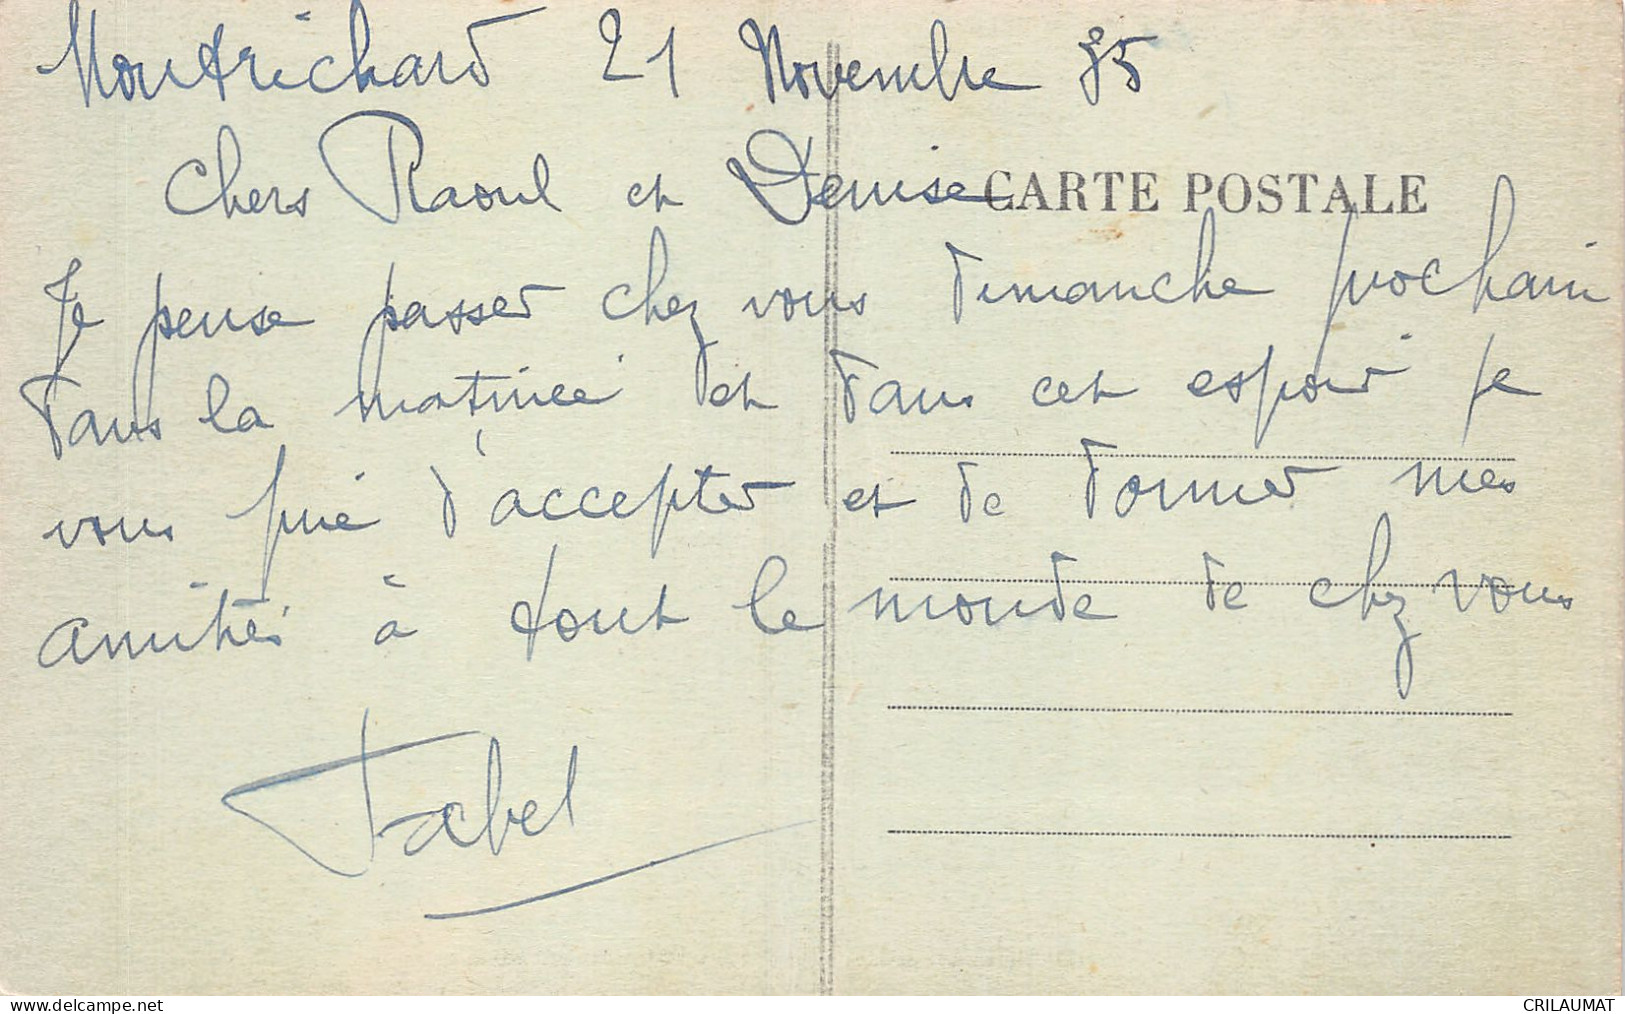 Montrichard 21 Novembre 35
Chers Raoul et Denise
CARTE POSTALE
Je pense passer chez vous dimanche prochain
dans la matinée et dans cet espoir je
vous prie d'accepter et de donner mes
amitiés à tout le monde de chez vous
www.delcampe.net
CRILAUMAT